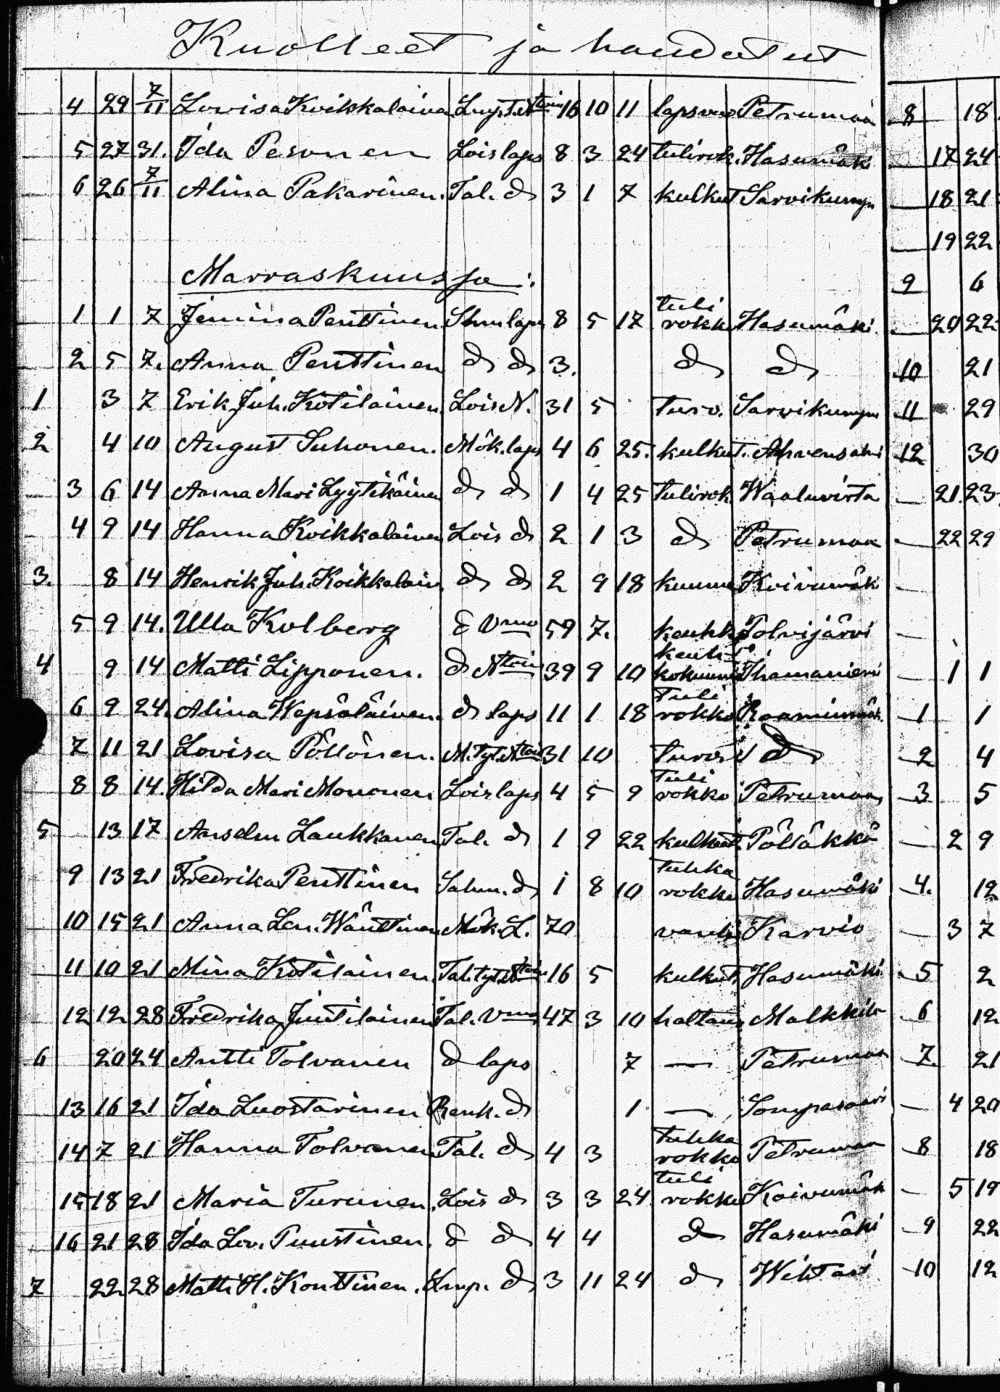 Kuolleet ja haudatut
4 29 7/11 Lovisa Koikkalainen 16 10 11 Petrumaa 8 18
5 27 31. Ida Pesonen Lois laps 8 3 24 tulirok. Hasumäki — 17 24
6 26 7/11 Alina Pakarinen. Tal. d 3 1 7 kulkut Sarvikumpu — 18 21
— 19 22
Marraskuussa: 9 6
1 1 7 Jemina Penttinen laps 8 5 17 tuli rokko Hasumäki. — 20 22
2 5 7. Anna Penttinen d d 3. d d 10 21
1 3 7 Erik Joh. Kotilainen Lois N. 31 5 turv. Sarvikumpu 11 29
2 4 10 August Suhonen. Mök. laps 4 6 25. kulkut. Ahvensalmi 12 30
3 6 14 Anna Mari Lyytikäinen d d 1 4 25 tulirok Waaluvirta — 21. 23
4 9 14 Hanna Koikkalainen Lois d 2 1 3 d Petrumaa — 22 29
3. 8 14 Henrik Joh. Koikkalain. d d 2 9 18 kuume Koivumäk —
5 9 14. Ulla Kolberg d Vmo 59 7. keuhko Polvijärvi —
4 9 14 Matti Lipponen. d 39 9 10 keuh- kokuume Ihamaniemi — 1 1
6 9 24. Alina Wepsäläinen. d laps 11 1 18 tuli rokko — 1 1
7 11 21 Lovisa Pöllönen. 31 10 d — 2 4
8 8 14. Hilda Mari Mononen Lois laps 4 5 9 tuli rokko Petrumaa — 3 5
5 13 17 Anselm Laukkanen Tal. d 1 9 22 kulkut. Pölläkkä — 2 9
9 13 21 Fredrika Penttinen d 1 8 10 tuhka rokko Hasumäki — 4. 12
10 15 21 Anna Len. Wänttinen Mök. L. 70 vanh. Karvio — 3 7
11 10 21 Mina Kotilainen 16 5 kulkut. Hasumäki — 5 2
12 12 28 Fredrika Juutilainen Tal. Vmo 47 3 10 Malkkila — 6 12
6 20 24 Antti Tolvanen d laps 7 — Petrumaa — 7. 21
13 16 21 Ida Luostarinen Renk. d 1 — Sompasaari — 4 20
14 7 21 Hanna Tolvanen Tal. d 4 3 tuhka rokko Petrumaa — 8 18
15 18 21 Maria Turunen. Lois d 3 3 24. tuli rokko Koivumäk — 5 19
16 21 28 Ida Lov. Puustinen. d d 4 4 d Hasumäki — 9 22
7 22 28 Matti H. Konttinen. d 3 11 24 d Wihtari — 10 12